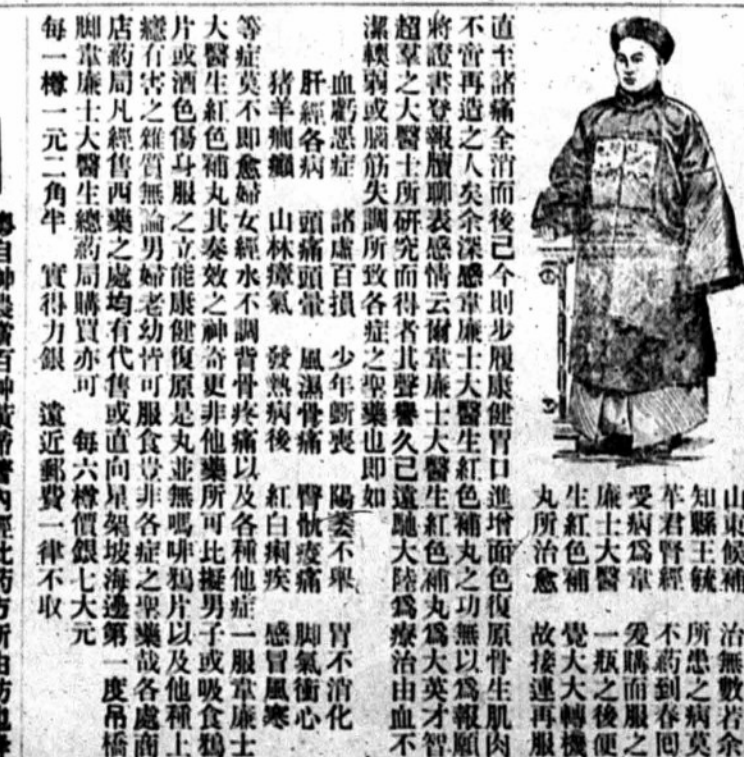 山東候補
知縣王毓
苹君賢經
受病爲韋
廉士大醫
生紅色補
丸所治愈
治無數若余
所患之病莫
不葯到春囘
爰購而服之
一瓶之後便
覺大大轉機
故接連再服
直至諸痛全消而後已今則步履康健胃口進增面色復原骨生肌肉
不啻再造之人矣余深感韋廉士大醫生紅色補丸之功無以爲報願
將證書登報牘聊表感情云爾韋廉士大醫生紅色補丸爲大英才智
超羣之大醫士所研究而得者其聲譽久已遠馳大陸爲療治由血不
潔輭弱或腦筋失調所致各症之聖藥也即如
血虧惡症 諸虛百損 少年斲喪 陽萎不舉 胃不消化
肝經各病 頭痛頭暈 風濕骨痛 臀骯痠痛 脚氣衝心
猪羊癇癲 山林瘴氣 發熱病後 紅白痢疾 感冒風寒
等症莫不即愈婦女經水不調背骨疼痛以及各種他症一服韋廉士
大醫生紅色補丸其奏效之神奇更非他藥所可比擬男子或吸食鴉
片或酒色傷身服之立能康健復原是丸並無嗎啡鴉片以及他種上
癮有害之雜質無論男婦老幼皆可服食豈非各症之聖藥哉各處商
店葯局凡經售西藥之處均有代售或直向星架坡海邊第一度吊橋
脚韋廉士大醫生總葯局購買亦可 每六樽價銀七大元
每一樽一元二角半 實得力銀 遠近郵費一律不取